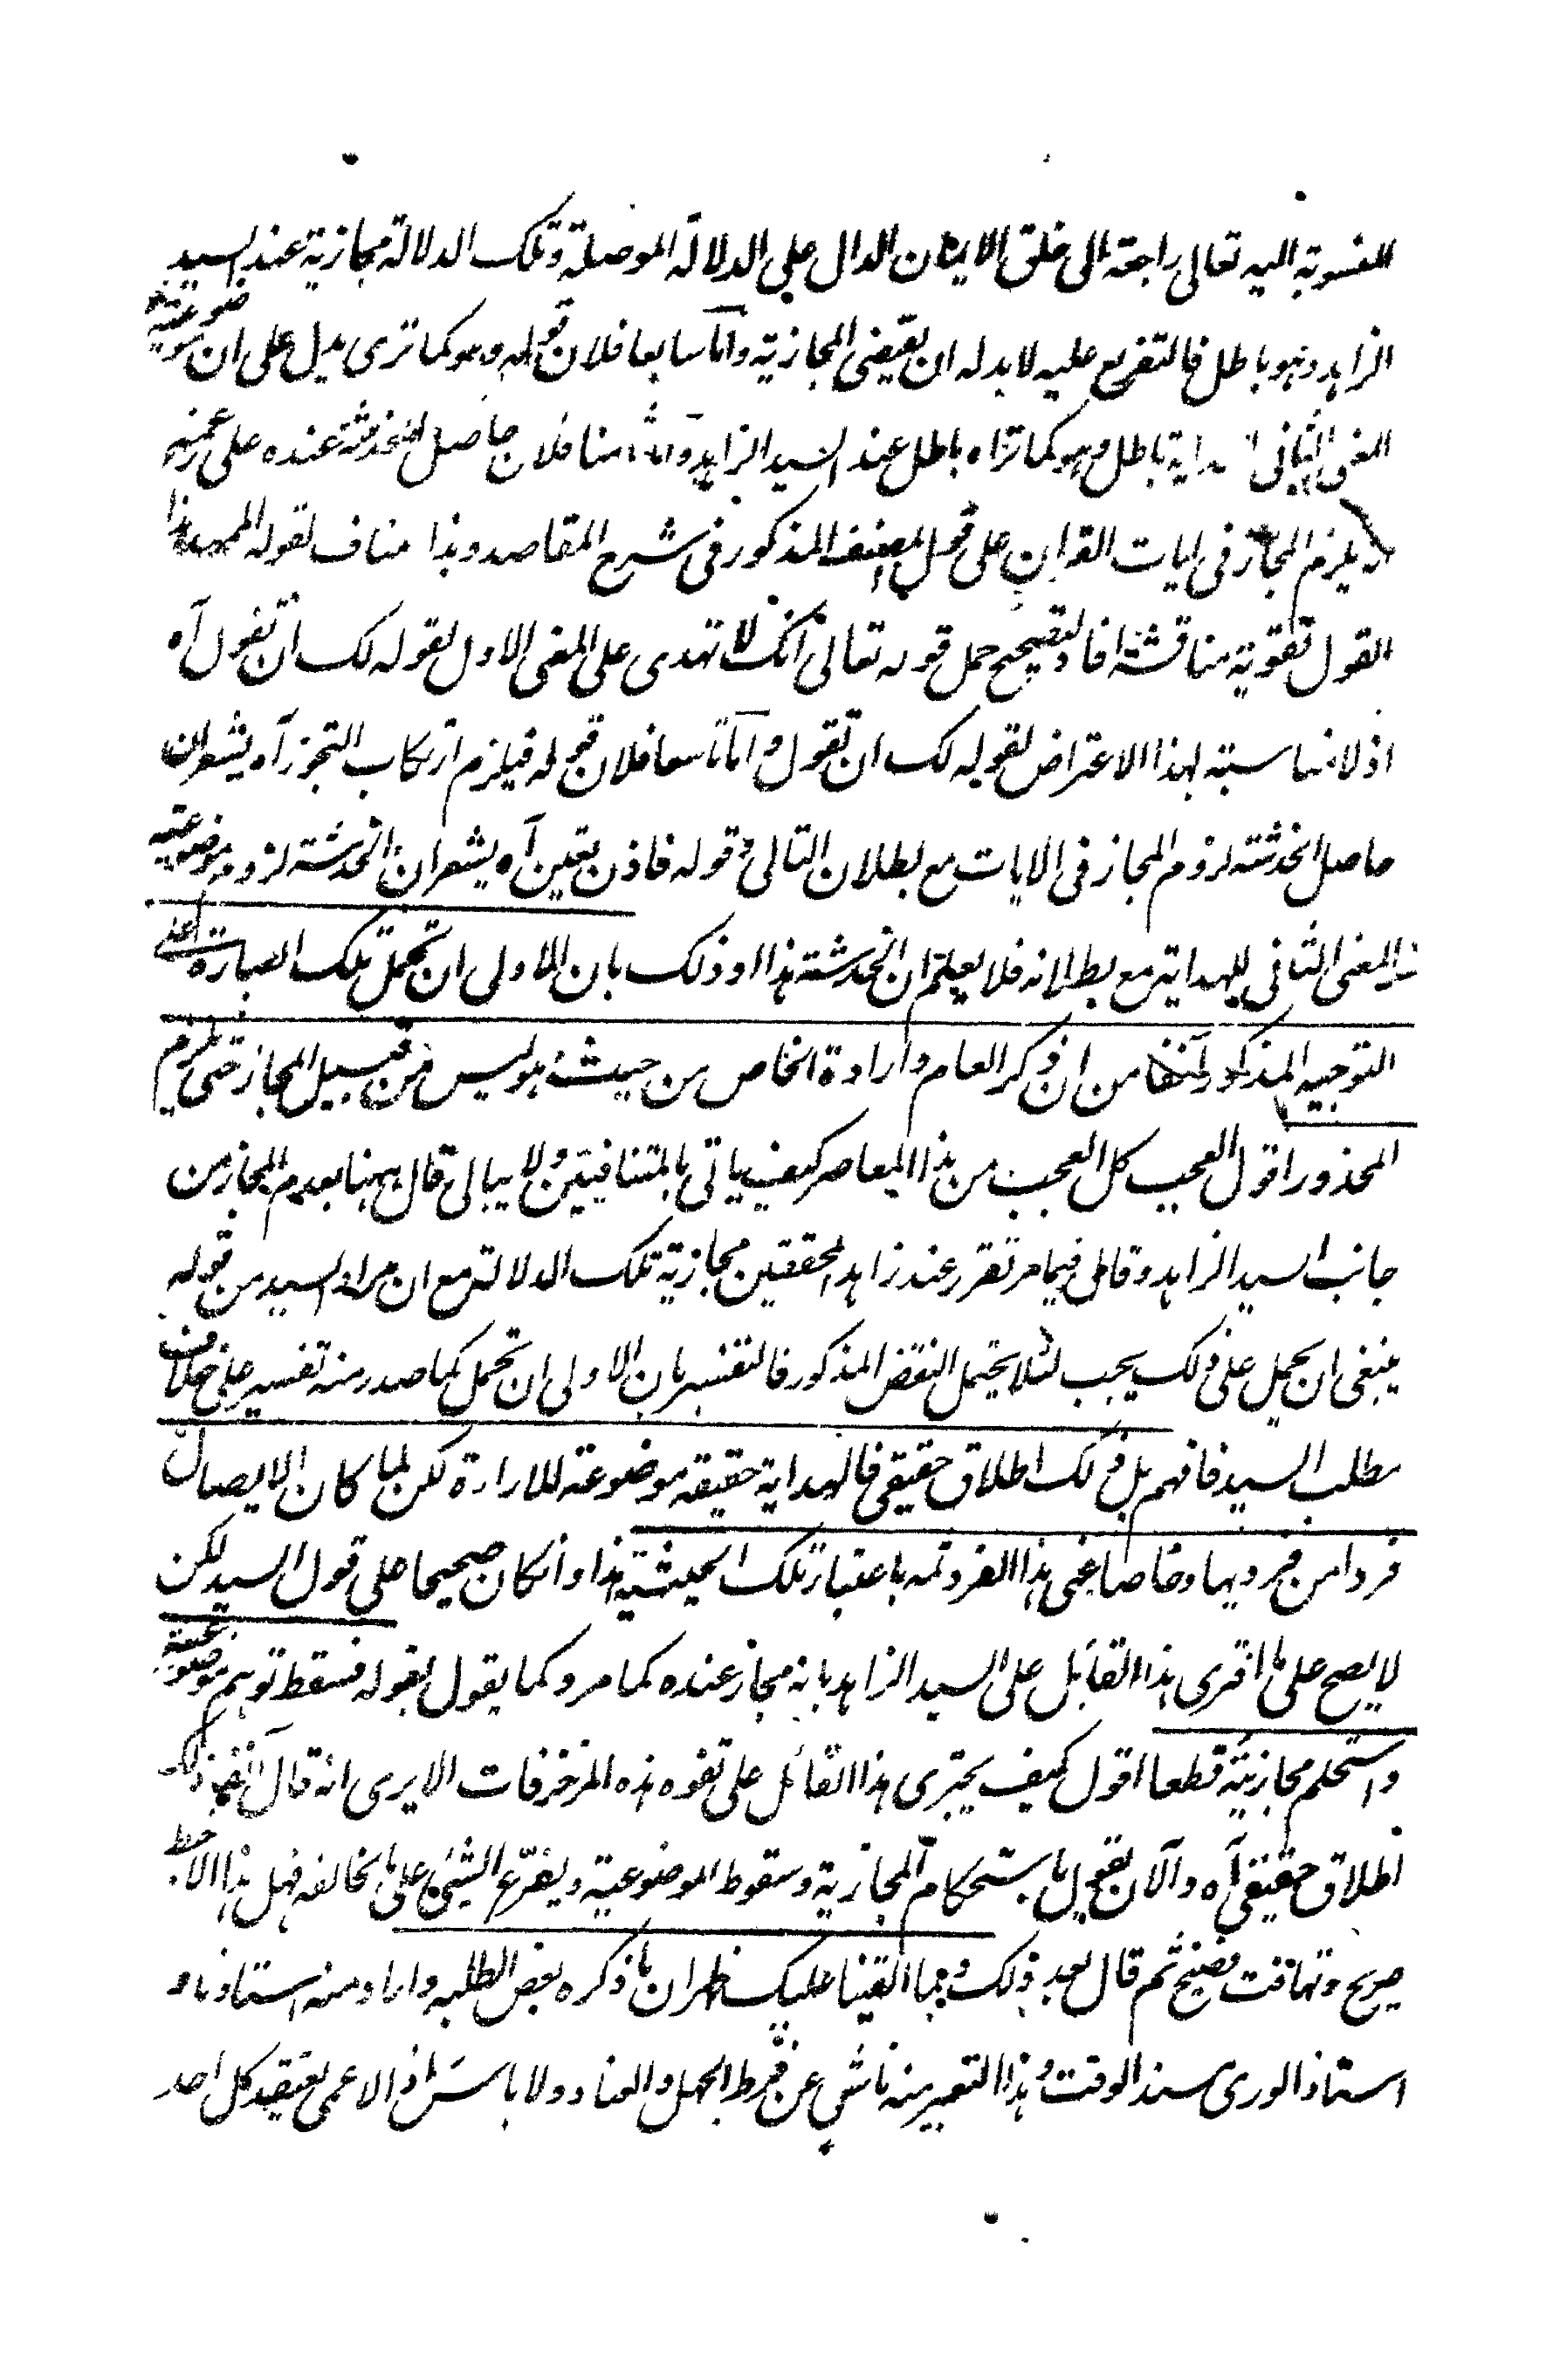 المنسوبة اليه تعالى راجعة الى خلق الايمان الدال على الدلالة الموصلة وتلك الدلالة مجازية عند السيد
الزاهد وهو باطل فالتفريع عليه لا بد له ان يقيض المجازية واما سابعا فلان قوله وهو كما ترى يدل على ان موضوعية
المعنى الثانى لهداية باطل وهو كما تراه باطل عند السيد الزاهد واما ثامنا فلان حاصل الخدشة عنده على
يلزم المجاز فى ايات القران على قول المصنف المذكور فى شرح المقاصد وهذا مناف لقوله الممهد
القول تقوية مناقشة افاد لتصحيح حمل قوله تعالى انك لا تهدى على المعنى الاول لقوله لك ان تقول آه
اذ لا مناسبة لهذا الاعتراض لقوله لك ان تقول واما تاسعا فلان قوله فيلزم ارتكاب التجوز آه يشعر ان
حاصل الخدشة لزوم المجاز فى الايات مع بطلان التالى وقوله فاذن يتعين آه يشعر ان الخدشة لزوم موضوعية
المعنى الثانى للهداية مع بطلانه فلا يعلم ان الخدشة هذا او ذلك بان الاولى ان تحمل تلك العبارة على
التوجيه المذكور آنفا من ان ذكر العام وارادة الخاص من حيث هو ليس من قبيل المجاز حتى يلزم
المحذور اقول العجب كل العجب من هذا المعاصر كيف ياتى بالمتنافيتين ولا يبالى قال ههنا بعدم المجاز من
جانب السيد الزاهد وقال فيما مر تقرر عند زاهد المحققين مجازية تلك الدلالة مع ان مراد السيد من قوله
ينبغى ان يحمل على ذلك يجب لئلا يحتمل النقض المذكور فالتفسير بان الاولى ان تحمل كما صدر منه تفسير على خلاف
مطلب السيد فافهم بل ذلك اطلاق حقيقى فالهداية حقيقة موضوعة للاراءة لكن لما كان الايصال
فردا من فرديها وخاصا عنى هذا الفرد ثمه باعتبار تلك الحيثية هذا وانكان صحيحا على قول السيد لكن
لا يصح على ما افترى هذا القائل على السيد الزاهد بانه مجاز عنده كما مر وكما يقول بقوله فسقط توهم موضوعية
واستحكم مجازيته قطعا اقول كيف يجترى هذا القائل على تفوه هذه المزخرفات الا يرى انه قال آنفا ذلك
اطلاق حقيقى آه والآن يقول باستحكام المجازية وسقوط الموضوعية ويفرع الشيئ على ما يخالفه فهل هذا الا خبط
صريح وتهافت فضيح ثم قال بعد ذلك وبما القينا عليك ظهر ان ما ذكره بعض الطلبه واراد منه استاذنا و
استاذ الورى سند الوقت وهذا التعبير منه ناشى عن فرط الجهل والعناد ولا باس اذ الاعمى يعتقد كل احد